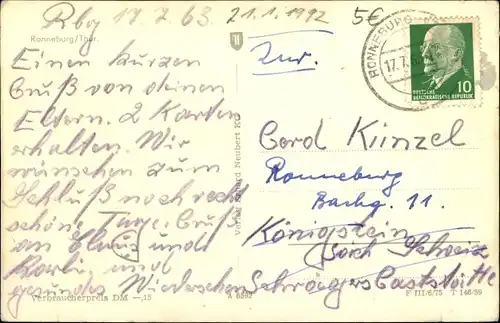 Rbg 17.7.63
21.1.1992
5€
Ronneburg/Thür.
Einen kurzen
Gruß von deinen
Eltern. 2 Karten
erhalten. Wir
wünschen zum
Schluß noch recht
schöne Tage. Gruß
an und
und
gesundes Wiedersehen
Verbraucherpreis DM —,15
A 8592
Zur.
RONNEBURG
17.7.
DEUTSCHE
DEMOKRATISCHE REPUBLIK
10
Gerd Künzel
Ronneburg
Bachg. 11.
Königstein
Säch Schweiz
Schwägers Gaststätte
F III/6/75 T 146/59